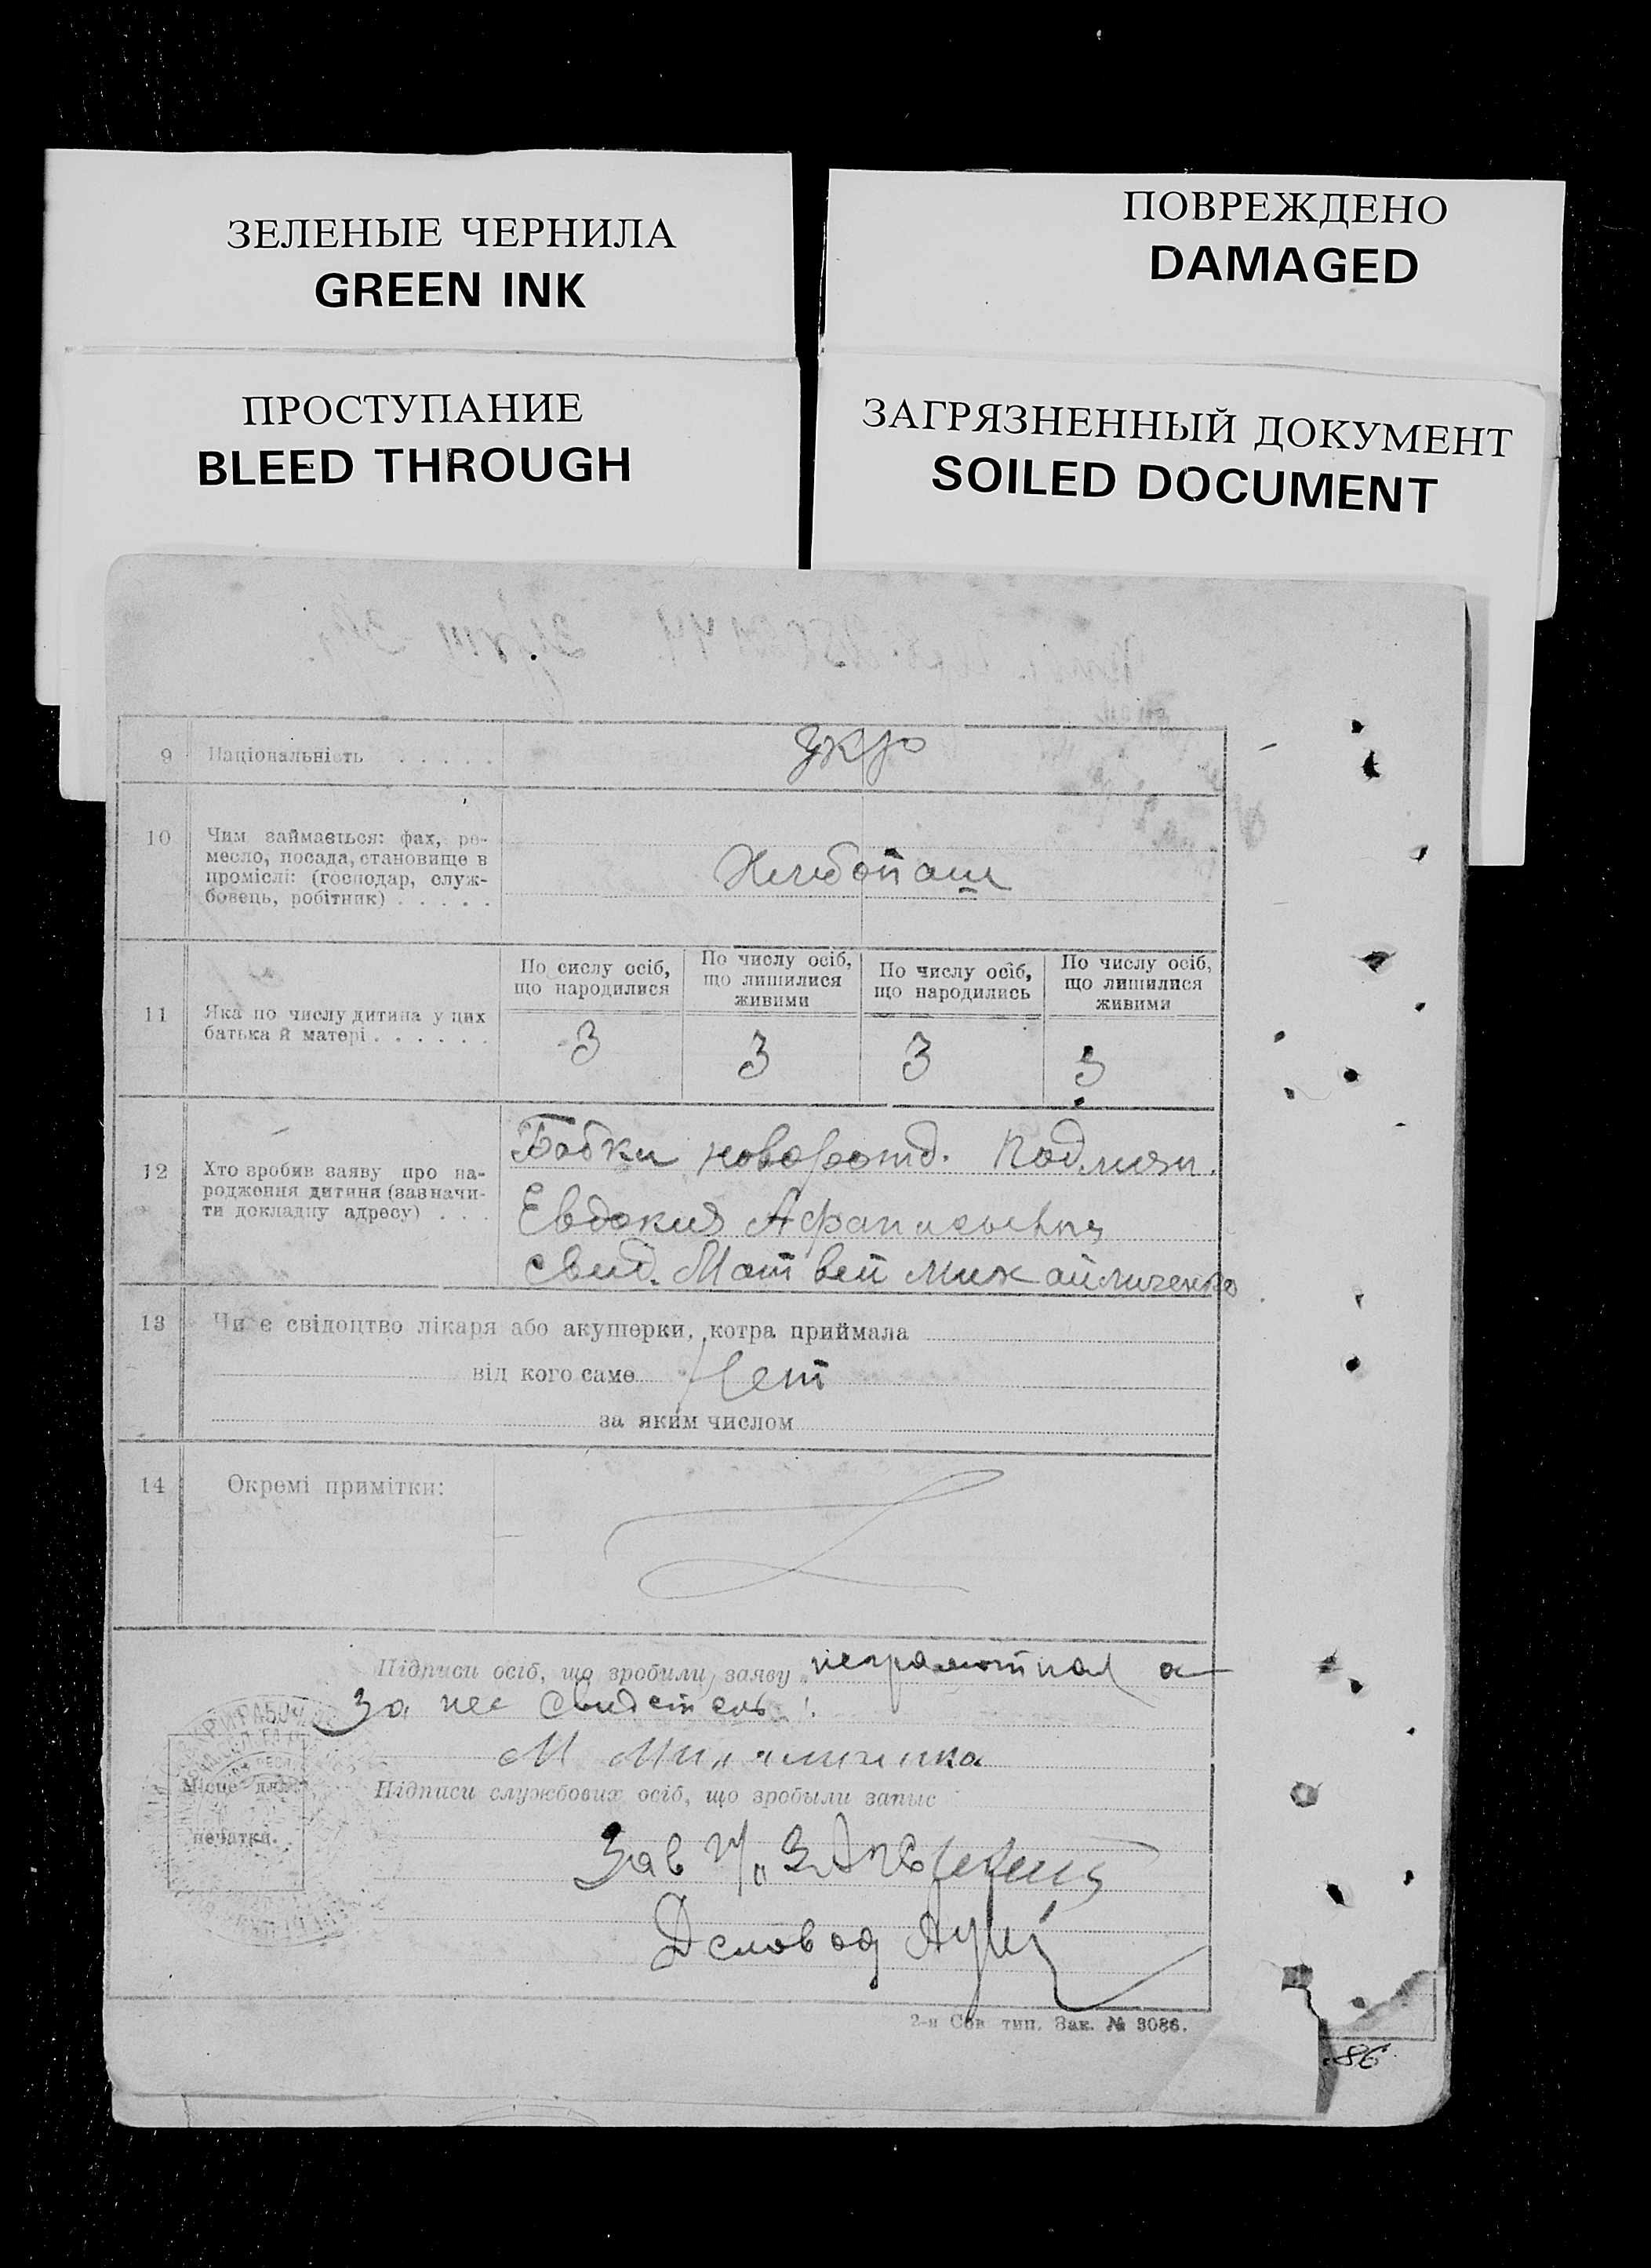 ЗЕЛЕНЫЕ ЧЕРНИЛА
GREEN INK
ПОВРЕЖДЕНО
DAMAGED
ПРОСТУПАНИЕ
BLEED THROUGH
ЗАГРЯЗНЕННЫЙ ДОКУМЕНТ
SOILED DOCUMENT
9 Національність . . . . . укр
10 Чим займається: фах, ре-
месло, посада, становище в
промислі: (господар, служ-
бовець, робітник) . . . . .
Хлебопаш
11 Яка по числу дитина у цих
батька й матері . . . . . .
По сислу осіб,
що народилися
По числу осіб,
що лишилися
живими
По числу осіб,
що народились
По числу осіб,
що лишилися
живими
3 3 3 3
12 Хто зробив заяву про на-
родження дитини (зазначи-
ти докладну адресу) . . .
Бабки новорожд.
Евдокия
Свид. Матвей Михайличенко
13 Чи є свідоцтво лікаря або акушерки, котра приймала
від кого саме Нет
за яким числом
14 Окремі примітки:
Підписи осіб, що зробили заяву неграмотная а
За нее свидетель
М
Підписи службових осіб, що зробыли запыс
Місце для
печатки.
Зав
Деловод
2-я Сов тип. Зак. № 3086.
86